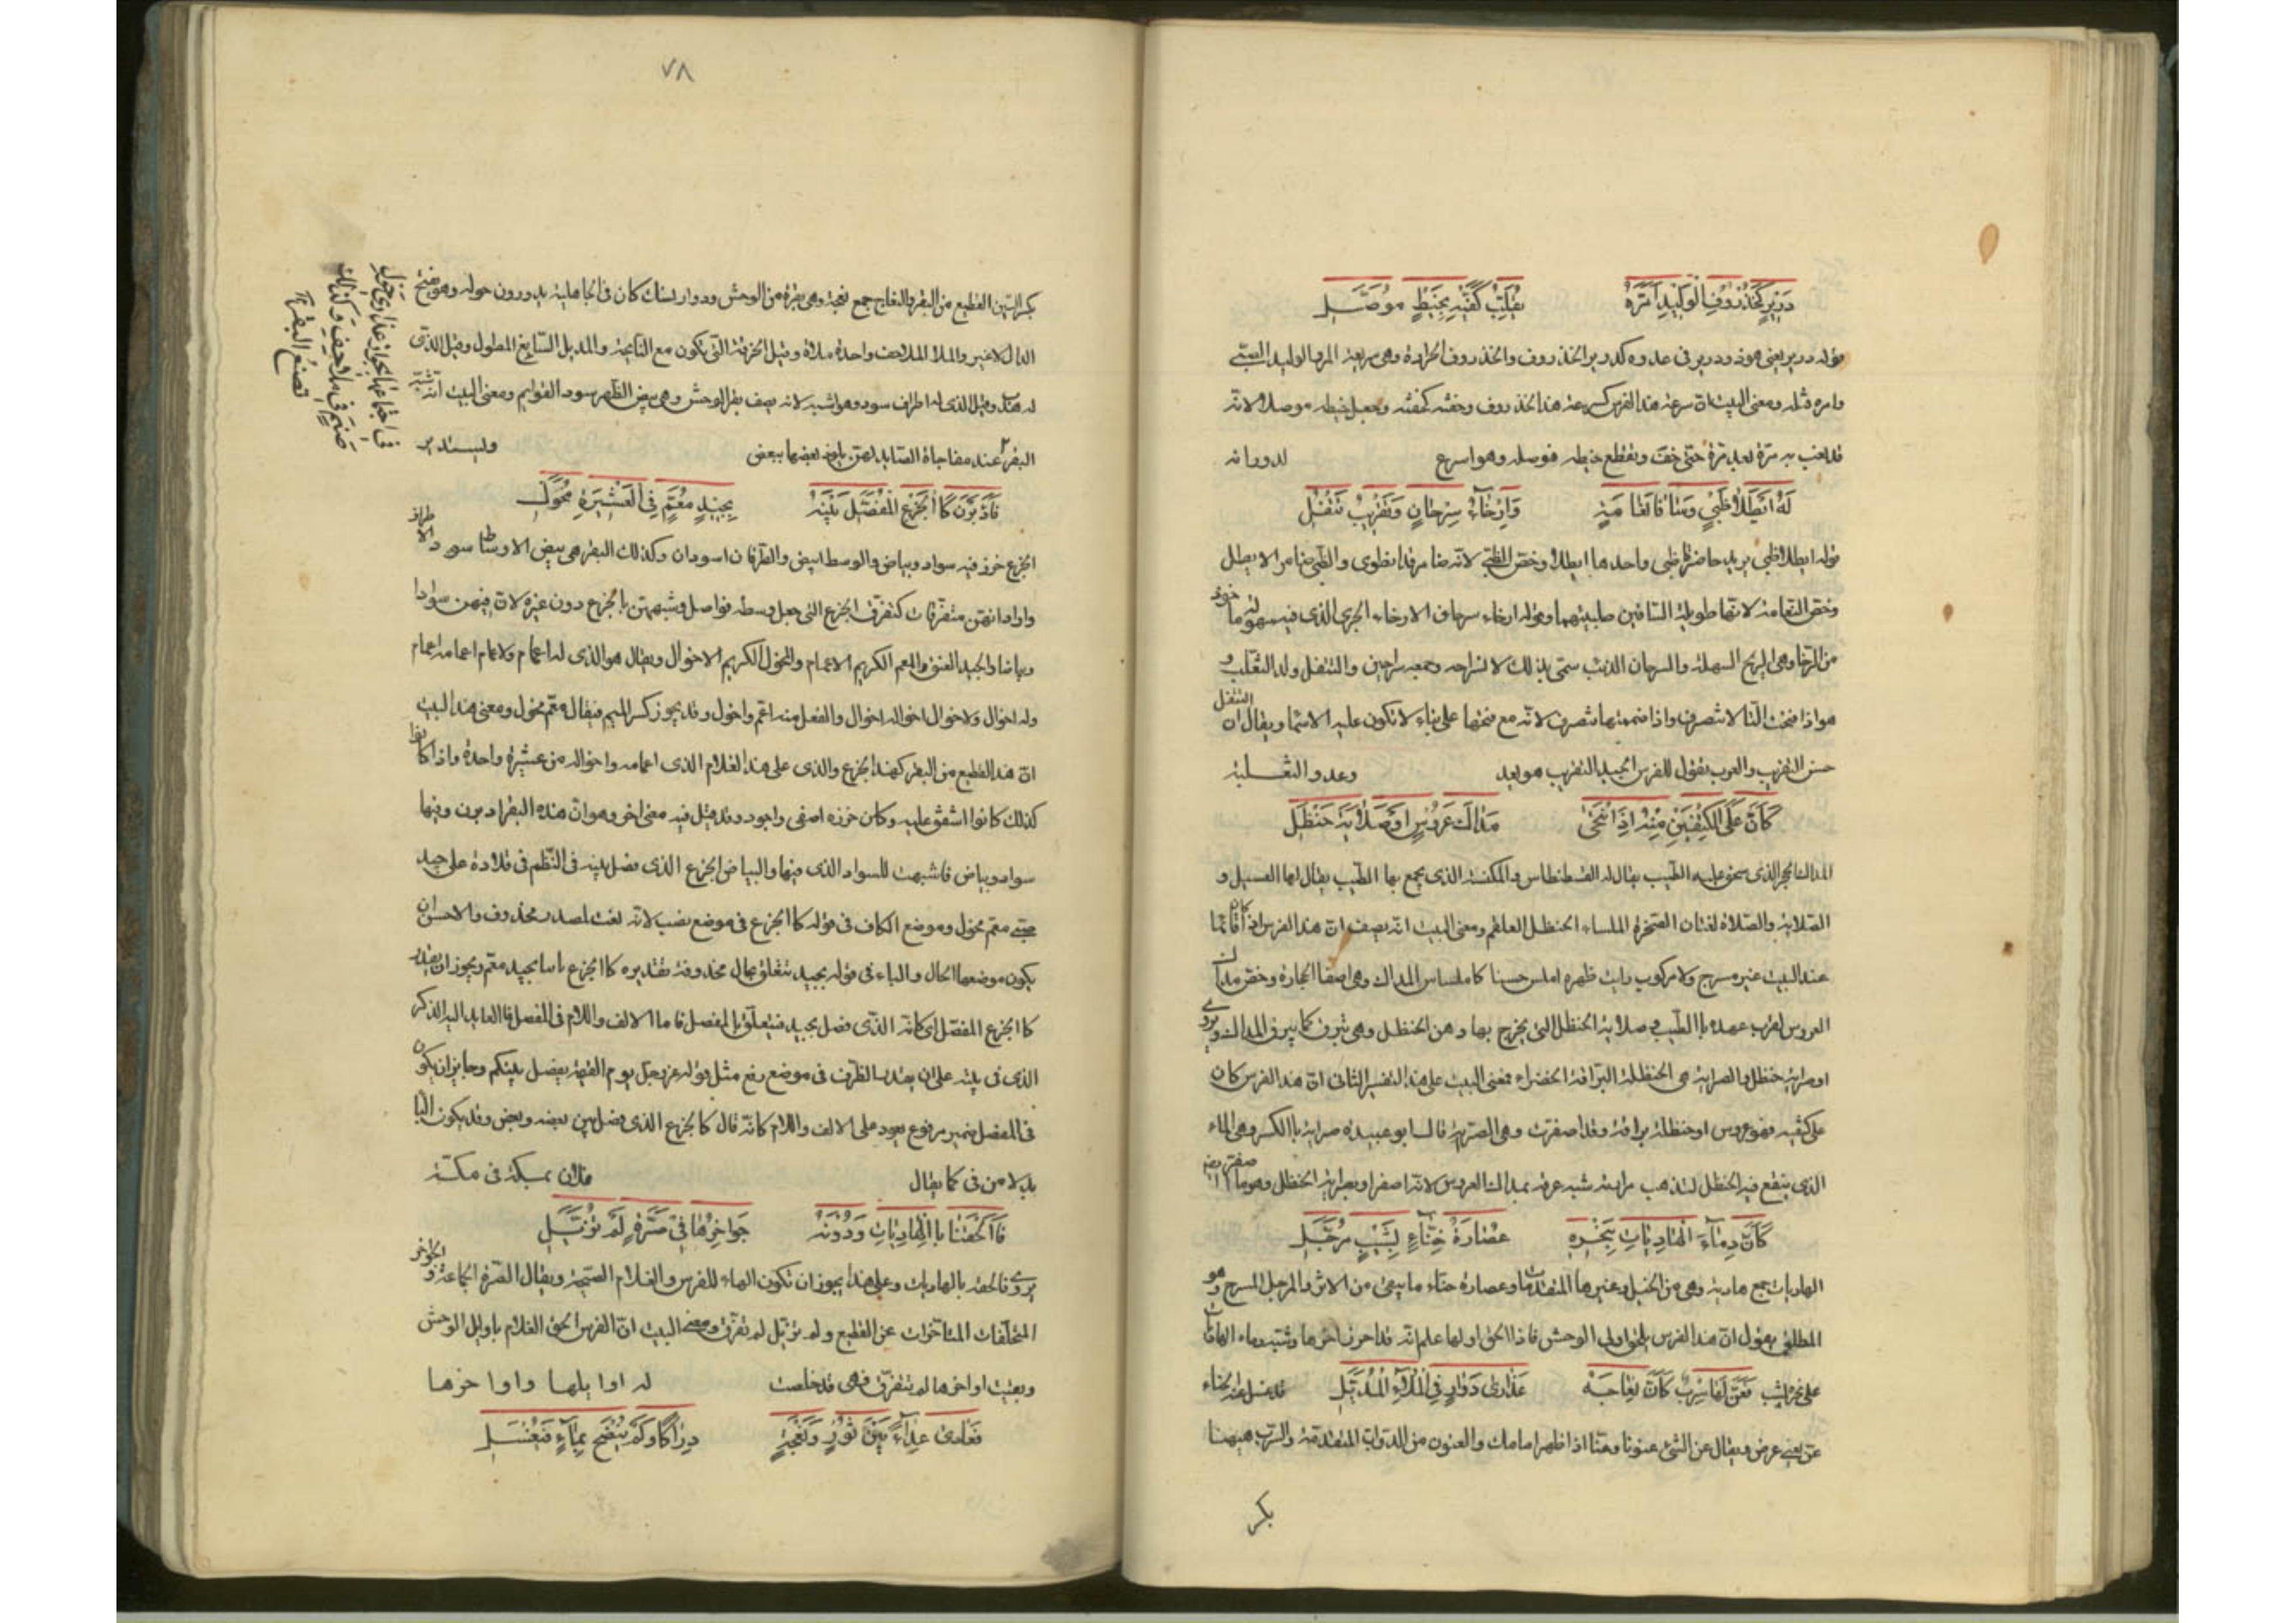 دَرِيرٍ كَخُذْرُوفِ الْوَلِيدِ اَمَرَّهُ تَقَلُّبُ كَفَّيْهِ بِخَيْطٍ مُوَصَّلِ
قوله درير يعنى هو ذو درير فى عدوه كدرير الخذروف والخذروف الجرادة وهى سريعة المر والوليد الصبى
وامره فتله ومعنى البيت ان سرعة هذا الفرس كسرعة هذا الخذروف وخفته كخفته وجعل خيطه موصلا لانه
قد لعب به مرة بعد مرة حتى خف وتقطع خيطه فوصله وهو اسرع لدورانه
لَهُ اَيْطَلَا ظَبْىٍ وَسَاقَا نَعَامَةٍ وَاِرْخَاءُ سِرْحَانٍ وَتَقْرِيبُ تَتْفُلِ
قوله ايطلا ظبى يريد خاصرتا ظبى واحدها ايطل وخص الظبى لانه ضامر قد انطوى والظبى ضامر الايطل
وخص النعامة لانها طويلة الساقين صلبتهما وقوله ارخاء سرحان الارخاء الجرى الذى فيه سهولة
من الرخا وهى الريح السهلة والسرحان الذئب سمى بذلك لانسراحه وجمعه سراحين والتتفل ولد الثعلب و
هو اذا فتحت التا لا تنصرف واذا ضممتها تنصرف لانه مع فتحها على بناء لا تكون عليه الاسما ويقال ان التتفل
حسن التقريب والعرب يقول للفرس الجيد التقريب هو يعد وعدو الثعلبية
كَاَنَّ عَلَى الْكَتِفَيْنِ مِنْهُ اِذَا انْتَحَى مَدَاكُ عَرُوسٍ اَوْ صَلَايَةُ حَنْظَلِ
المداك الحجر الذى يسحق عليه الطيب يقال له القسطناس والمكنسة الذى يجمع بها الطيب يقال لها العسيل و
الصلاية والصلاة لغتان الصخرة الملساء الحنظل العلقم ومعنى البيت انه يصف ان هذا الفرس اذا كان قائما
عند البيت غير مسرج ولا مركوب رايت ظهره املس حسنا كاملساس المداك وهى اصفا الحجارة وخص مداك
العروس لقرب عهده بالطيب وصلاية الحنظل التى يخرج بها دهن الحنظل وهى تبرق كما يبرق المداك ويروى
او صراية حنظل والصراية هى الحنظلة البراقة الخضراء فمعنى البيت على هذا التفسير الثانى ان هذا الفرس كان
على كتفيه مداك عروس او حنظلة براقة وقد اصفرت وهى الصراية قال ابو عبيدة صراية بالكسر وهى الماء
الذى ينقع فيه الحنظل لتذهب مرارته شبه عرقه بمداك العروس لانه اصفر او بصراية الحنظل وهو ما
كَاَنَّ دِمَاءَ الْهَادِيَاتِ بِنَحْرِهِ عُصَارَةُ حِنَّاءٍ بِشَيْبٍ مُرَجَّلِ
الهاديات جمع هادية وهى من الخيل وغيرها المتقدمات وعصارة حناء ما يبقى من الاثر والمرجل المسرح وهو
المطلق يقول ان هذا الفرس يلحق اولى الوحش فاذا لحق اولها علم انه قد احرز اخرها وشبه دماء الهاديات
على نحره بشيب قد غسل عنه الحناء
فَعَنَّ لَهَا سِرْبٌ كَاَنَّ نِعَاجَهُ عَذَارَى دَوَارٍ فِى الْمُلَاءِ الْمُذَيَّلِ
عن يعنى عرض ويقال عن الشئ عنونا وعنا اذا ظهر امامك والعنون من الدواب المتقدمة والسرب ههنا
بكر
٧٨
بكسر السين القطيع من البقر والنعاج جمع نعجة وهى بقرة من الوحش ودوار نسك كان فى الجاهلية يدورون حوله وهو بفتح
الدال لا غير والملا الملاحف واحدة ملاة وقيل الخرقة التى تكون مع النائحة والمذيل السابغ المطول وقيل الذى
له هدب وقيل الذى له اطراف سود وهو اشبه لانه يصف بقر الوحش وهى بيض الظهر سود القوايم ومعنى البيت انه شبه
البقر عند مفاجاة الصايد لهن يلوذ بعضها ببعض وليستدير
فى اجتماعها بجوار عذارى حول
صنم فى ملاحف وكذلك
تصنع البقر
فَاَدْبَرْنَ كَالْجَزْعِ الْمُفَصَّلِ بَيْنَهُ بِجِيدِ مُعَمٍّ فِى الْعَشِيرَةِ مُخْوَلِ
الجزع خرز فيه سواد وبياض والوسط ابيض والطرفان اسودان وكذلك البقر هى بيض الاوساط سود الاطراف
واراد انهن متفرقات كتفرق الجزع التى جعل وسطه فواصل وشبههن بالجزع دون غيره لان فيهن سوادا
وبياضا والجيد العنق والمعم الكريم الاعمام والمخول الكريم الاخوال ويقال هو الذى له اعمام ولاعمامه اعمام
وله اخوال ولاخواله اخوال والفعل منه اعم واخول وقد يجوز كسر الميم فيقال معم مخول ومعنى هذا البيت
ان هذا القطيع من البقر كهذا الجزع والذى على هذا الغلام الذى اعمامه واخواله من عشيرة واحدة واذا كانوا
كذلك كانوا اشفق عليه وكان خرزه اصفى واجود وقد قيل فيه معنى اخر وهو ان هذه البقر ادبرن وفيها
سواد وبياض فاشبهت للسواد الذى فيها والبياض الجزع الذى فصل بينه فى النظم فى قلادة على جيد
صبى معم مخول وموضع الكاف فى قوله كالجزع فى موضع نصب لانه نعت لمصدر محذوف والاحسن ان
يكون موضعها الحال والباء فى قوله بجيد تتعلق بحال محذوفة تقديره كالجزع ثابتا بجيد معم ويجوز ان يقدر
كالجزع المفصل اى كانه الذى فصل بجيد فيتعلق بالمفصل فاما الالف واللام فى المفصل فالعايد اليه الذكر
الذى فى بينه على ان يقدر الظرف فى موضع رفع مثل قوله عز وجل يوم القيمة يفصل بينكم وجايز ان يكون
فى المفصل ضمير مرفوع يعود على الالف واللام كانه قال كالجزع الذى فصل بين بعضه وبعض وقد يكون البا
بدلا من فى كما يقال فلان بمكة فى مكة
فَاَلْحَقَنَا بِالْهَادِيَاتِ وَدُونَهُ جَوَاحِرُهَا فِى صَرَّةٍ لَمْ تُزَيَّلِ
يروى فالحقه بالهاديات وعلى هذا يجوز ان تكون الهاء للفرس والغلام الصيحة ويقال الصرة الجماعة والجواحر
المتخلفات المتاخرات عن القطيع ولم تزيل لم تفرق ومعنى البيت ان الفرس الحق الغلام باوايل الوحش
وبقيت اواخرها لم تتفرق فهى قد خلصت له اوايلها واواخرها
فَعَادَى عِدَاءً بَيْنَ ثَوْرٍ وَنَعْجَةٍ دِرَاكًا وَلَمْ يُنْضَحْ بِمَاءٍ فَيُغْسَلِ